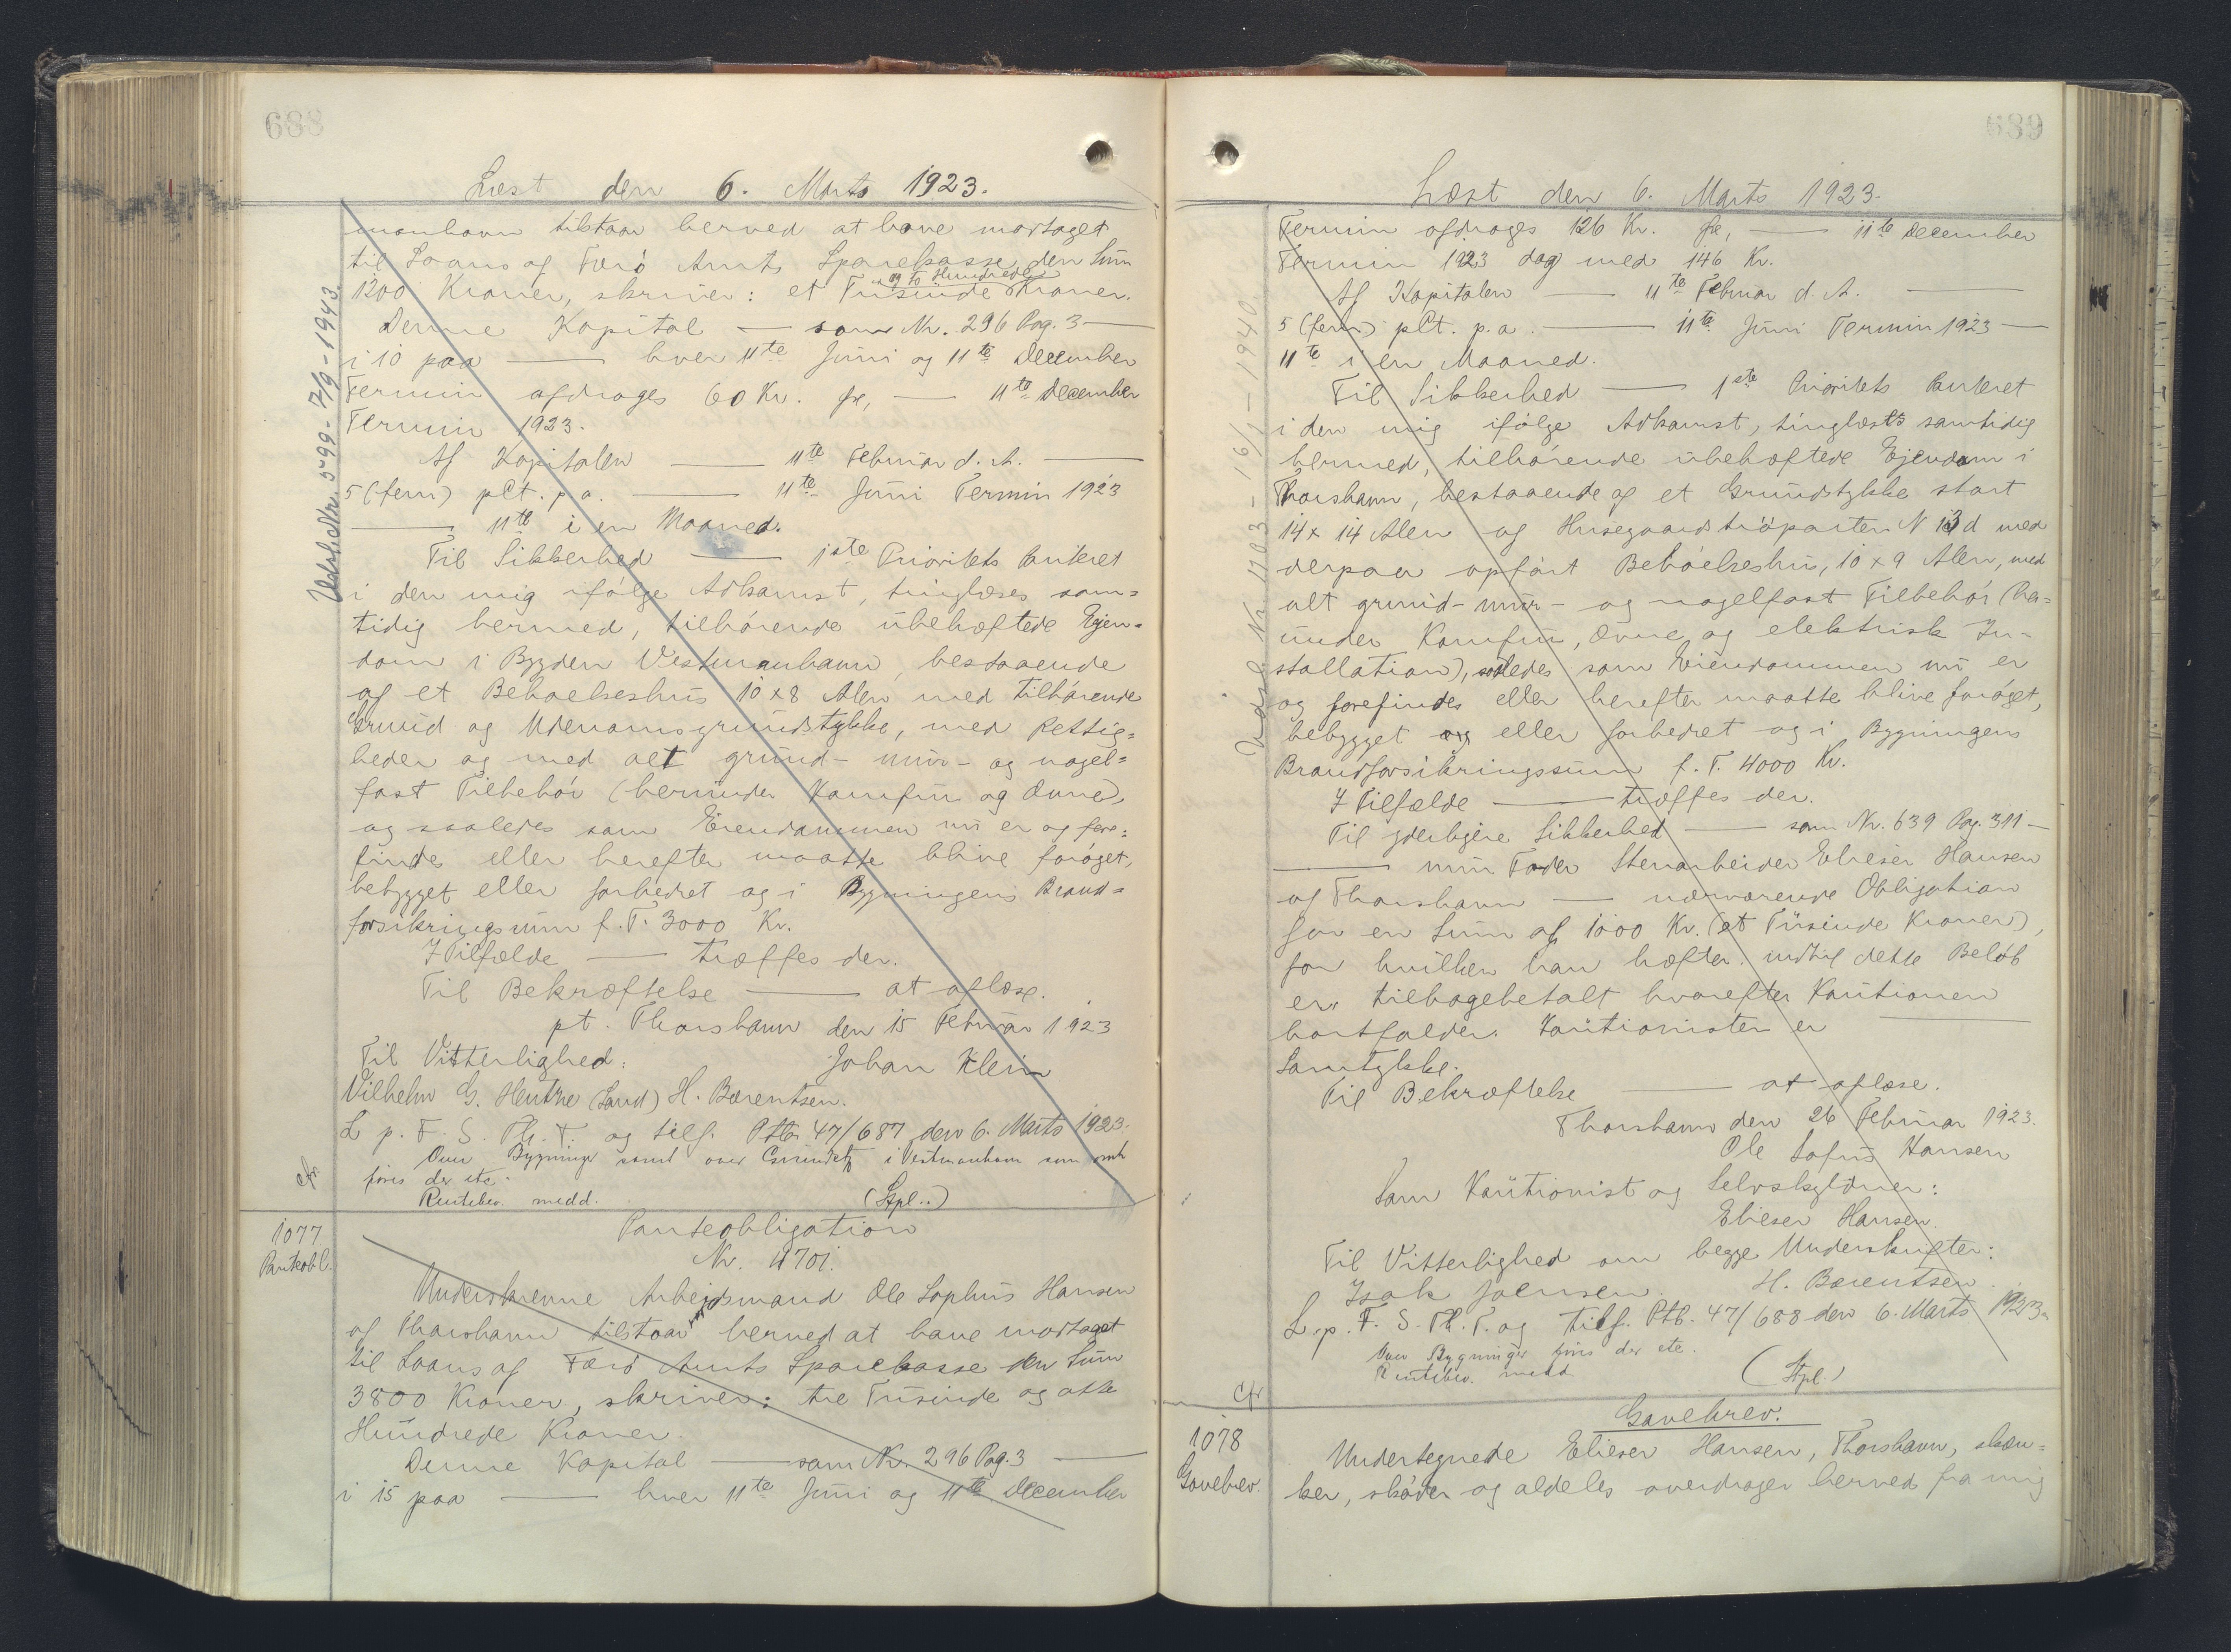 688
Læst den 6. Marts 1923.
Udsl. Nr. 599 - 7/9 - 1943.
manhavn tilstaar herved at have modtaget
til Laans af Færö Amts Sparekasse den Sum
1200 Kroner, skriver: et Tusinde og to Hundrede Kroner.
Denne Kapital — som Nr. 296 Pag. 3 —
i 10 paa — hver 11te Juni og 11te December
Termin afdrages 60 Kr. fe, — 11te December
Termin 1923.
Af Kapitalen — 11te Februar d. A. —
5 (fem) pCt. p.a. — 11te Juni Termin 1923
— 11te i en Maaned.
Til Sikkerhed — 1ste Prioritets Panteret
i den mig ifølge Adkomst, tinglæses sam=
tidig hermed, tilhörende ubehæftede Ejen=
dom i Bygden Vestmanhavn, bestaaende
af et Beboelseshus 10 x 8 Alen med tilhörende
Grund og Udenomsgrundstykke, med Rettig=
heder og med alt grund- mur- og nagel=
fast Tilbehör (herunder Komfur og Ovne),
og saaledes som Eiendommen nu er og fore=
findes eller herefter maatte blive foröget,
bebygget eller forbedret og i Bygningens Brand=
forsikringssum f. T. 3000 Kr.
I Tilfælde — træffes der.
Til Bekræftelse — at aflæse.
pt. Thorshavn den 15 Februar 1923
Til Vitterlighed: Johan Klein
Vilhelm G. Hentze (Sand) H. Bærentsen.
L p. F. S. Th. T. og tilf. Ptb. 47/687 den 6. Marts 1923.
Over Bygninger samt over Grundst. i Vestmanhavn som omh
cfr. föris der etc.
Rentebev. medd. (Stpl..)
1077
Panteobl.
Panteobligation
Nr. 4701.
Underskrevne Arbejdsmand Ole Sophus Hansen
af Thorshavn tilstaar herved at have modtaget
til Laans af Færö Amts Sparekasse den Sum
3800 Kroner, skriver: tre Tusinde og otte
Hundrede Kroner.
Denne Kapital — som Nr. 296 Pag. 3 —
i 15 paa — hver 11te Juni og 11te December
689
Læst den 6. Marts 1923.
Udsl. Nr. 1703 - 16/1 - 1940.
Termin afdrages 126 Kr. fe, — 11te December
Termin 1923 dog med 146 Kr.
Af Kapitalen — 11te Februar d. A. —
5 (fem) pCt. p.a. — 11te Juni Termin 1923 —
11te i en Maaned.
Til Sikkerhed — 1ste Prioritets Panteret
i den mig ifølge Adkomst, tinglæst samtidig
hermed, tilhörende ubehæftede Ejendom i
Thorshavn, bestaaende af et Grundstykke stort
14 x 14 Alen og Husegaardströparten N 13 d med
derpaa opfört Beboelseshus, 10 x 9 Alen, med
alt grund- mur- og nagelfast Tilbehör (her=
under Komfur, Ovne og elektrisk In-
stallation), saaledes som Eiendommen nu er
og forefindes eller herefter maatte blive foröget,
bebygget eller forbedret og i Bygningens
Brandforsikringssum f. T. 4000 Kr.
I Tilfælde — træffes der.
Til yderligere Sikkerhed — som Nr. 639 Pag. 311 —
— min Fader Stenarbeider Elieser Hansen
af Thorshavn — nærværende Obligation
for en Sum af 1000 Kr. (et Tusinde Kroner),
for hvilken han hæfter indtil dette Beløb
er tilbagebetalt hvorefter Kautionen
bortfalder. Kautionisten er —
Samtykke.
Til Bekræftelse — at aflæse.
Thorshavn den 26 Februar 1923.
Ole Sofus Hansen
Som Kautionist og Selvskyldner:
Elieser Hansen.
Til Vitterlighed om begge Underskrifter:
Isak Joensen. H. Bærentsen.
L. p. F. S. Th. T. og tilf. Ptb. 47/688 den 6. Marts 1923.
Over Bygninger föris der etc.
Rentebev. medd. (Stpl.)
cfr
1078
Gavebrev.
Gavebrev.
Undertegnede Elieser Hansen, Thorshavn, skæn=
ker, sköder og aldeles overdrager herved fra mig